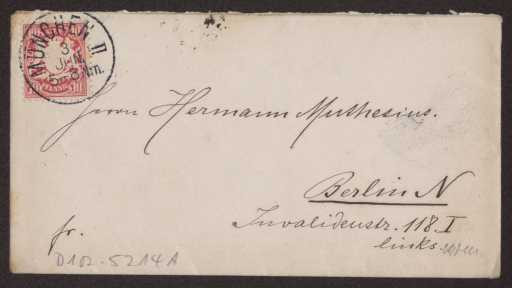 MÜNCHEN II
3
JAN.
Nm.
PFENNIG
Herrn Hermann Muthesius.
Berlin N
Invalidenstr. 118 I
links
fr.
D102-5214A